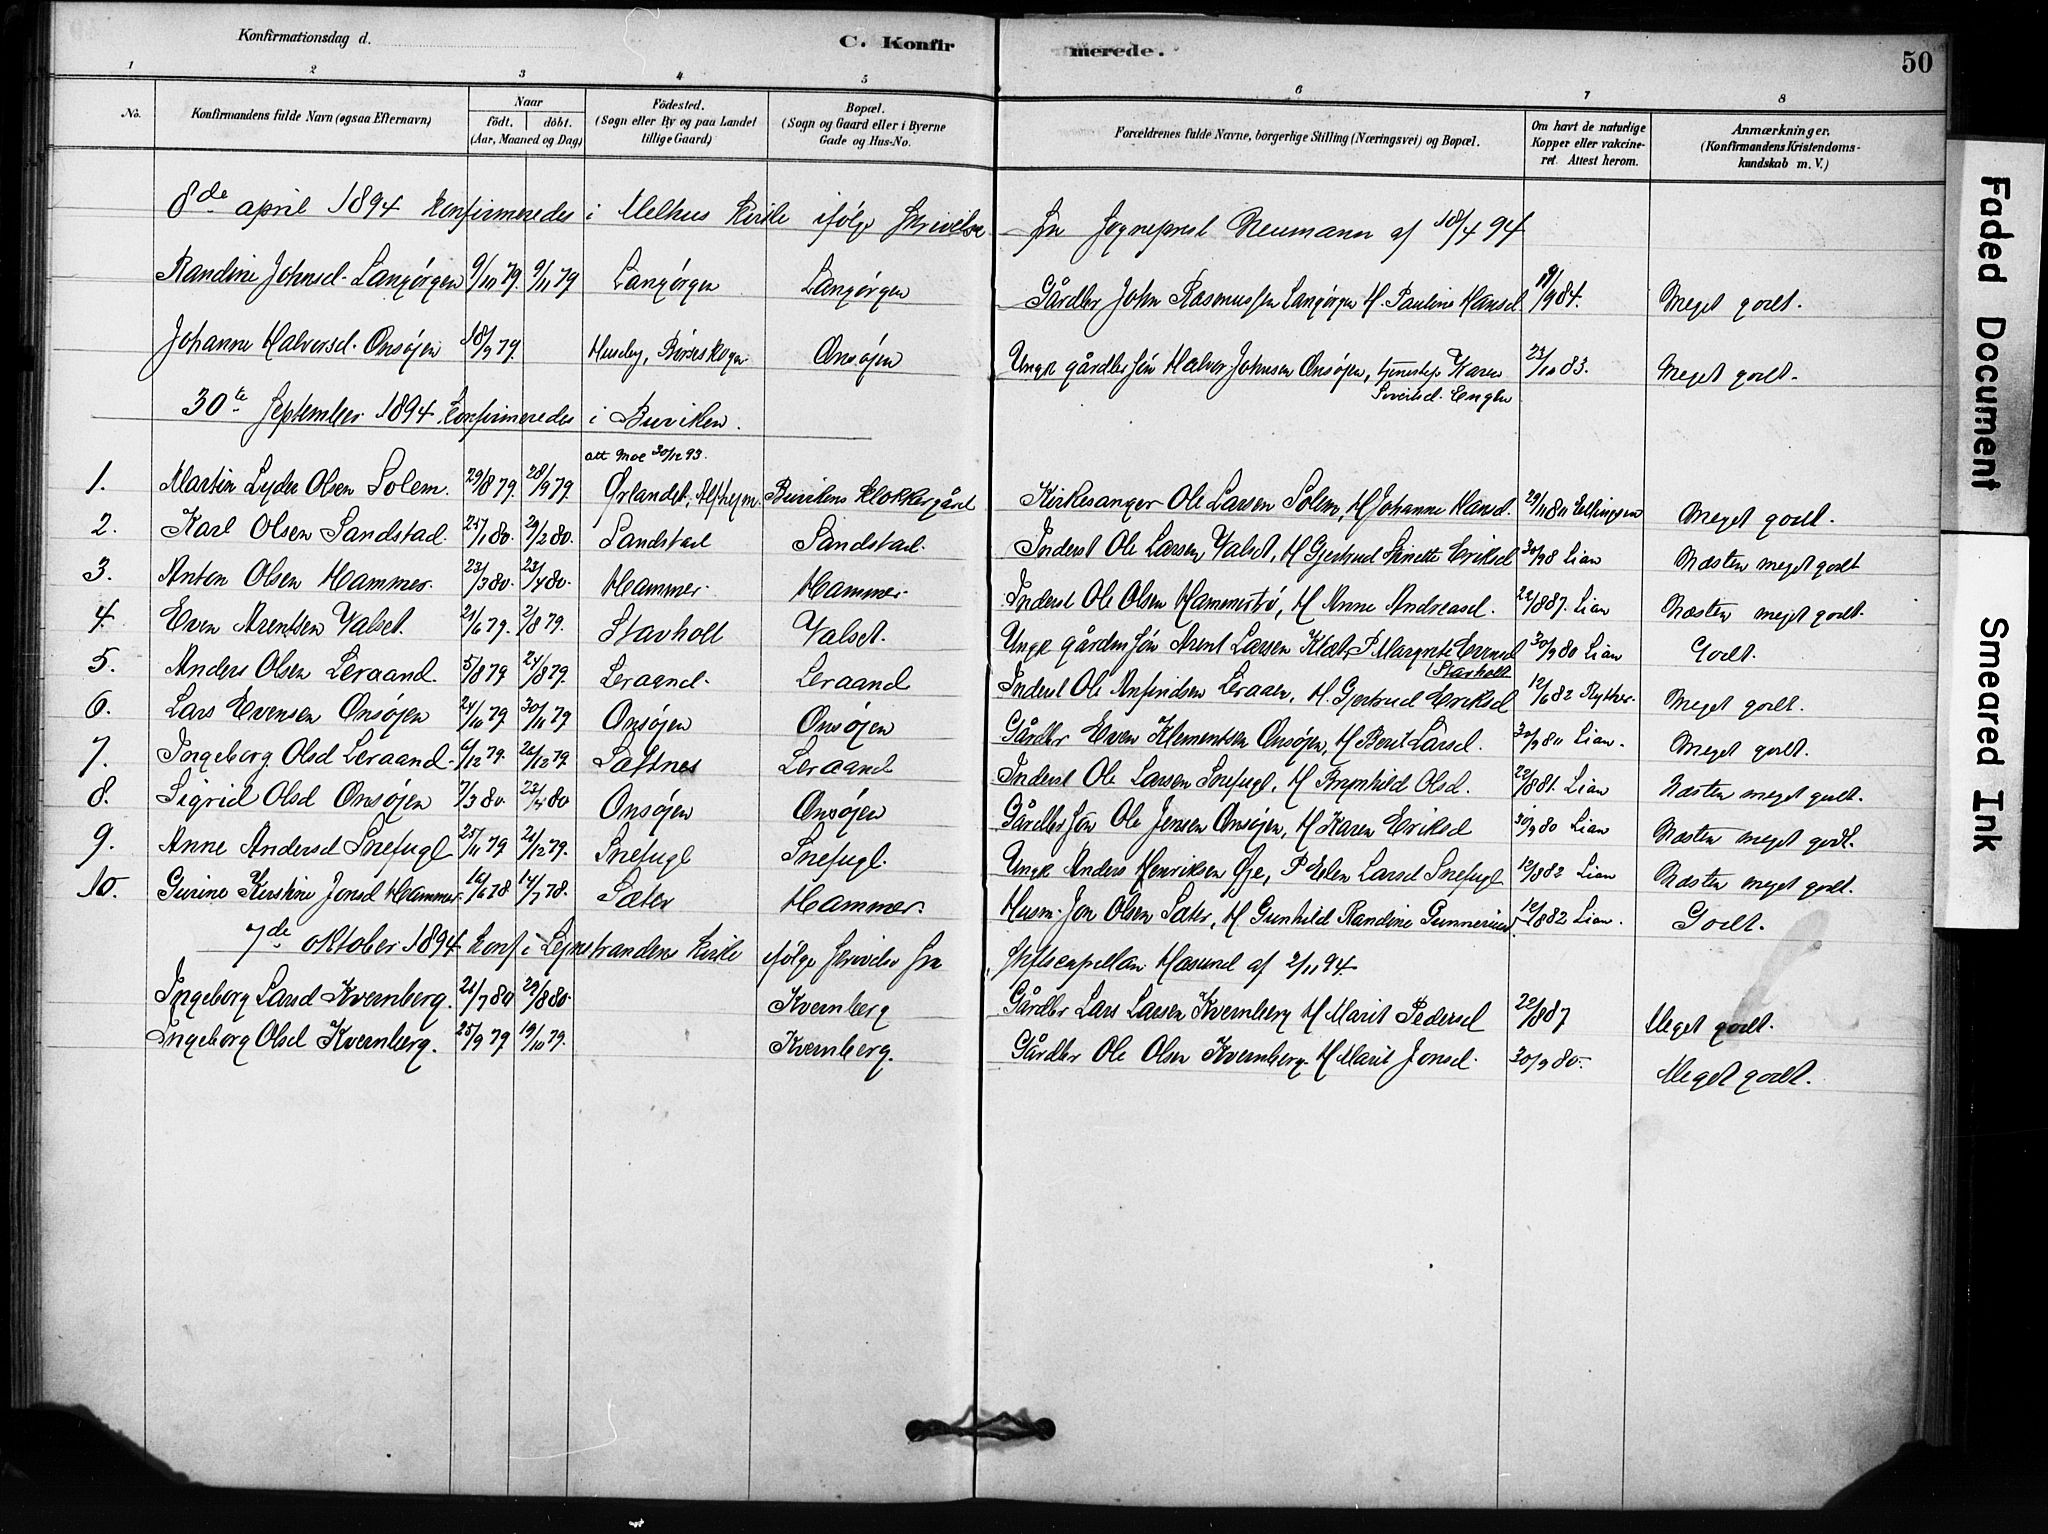 Konfirmationsdag d.
C. Konfirmerede.
50
1 2 3 4 5 6 7 8
No.
Konfirmandens fulde Navn (ogsaa Efternavn)
Naar født. døbt. (Aar, Maaned og Dag)
Fødested. (Sogn eller By og paa Landet tillige Gaard)
Bopæl. (Sogn og Gaard eller i Byerne Gade og Hus-No.
Forældrenes fulde Navne, borgerlige Stilling (Næringsvei) og Bopæl.
Om havt de naturlige Kopper eller vakcineret. Attest herom.
Anmærkninger. (Konfirmandens Kristendomskundskab m. V.)
8de april 1894 konfirmeredes i Melhus Kirke ifølge skrivelse fra sogneprest Neumann af 18/4 94
Randine Johnsd. Langørgen 9/10 79. 9/11 79 Langørgen Langørgen Gårdbr John Rasmussen Langørgen H. Pauline Hansd. /9 84. Meget godt.
Johanne Halvorsd. Onsøjen 18/9 79. Huseby, Børseskogn Onsøjen Ungk gårdbr søn Halvor Johnsen Onsøjen, Karen 23/10 83. Meget godt.
Sivertsd. Englen
30te September 1894 konfirmeredes i Buviken.
att Moe 30/12 93.
1. Martin Lyder Olsen Solem. 29/8 79. 28/9 79. Ørlandet, Buvikens Klokkergård Kirkesanger Ole Larsen Solem, H Johanne Hansd. 29/11 80 Ellingsen Meget godt.
2. Karl Olsen Sandstad 25/1 80. 29/2 80. Sandstad Sandstad. Inderst Ole Larsen Valset, H Gjertrud Eriksd 30/9 8 Lian Næsten meget godt
3. Anton Olsen Hammer. 23/3 80. 23/4 80. Hammer. Hammer. Inderst Ole Olsen Hammerbrø, H Anne Andreasd. 22/8 87. Lian Næsten meget godt.
4. Even Arentsen Valset. 21/6 79. 2/8 79. Stavholt Valset. Ungk gårdm søn Arent Larsen Klæt, P Margrete Evensd 30/9 80 Lian Godt.
Stavholt
5. Anders Olsen Leraand. 5/8 79 24/8 79. Leraand. Leraand Inderst Ole Anfindsen Leraaen, H. Gjertrud Eriksd 12/6 82 Ryther. Meget godt.
6. Lars Evensen Onsøjen 24/10 79 30/11 79 Onsøjen Onsøjen Gårdbr Even Klementsen Onsøjen, H Berit Larsd. 30/9 80 Lian. Meget godt.
7. Ingeborg Olsd Leraand. 6/12 79. 26/12 79 Saltnes Leraand Inderst Ole Larsen Snefugl, H Brynhild Olsd. 22/8 81. Lian Næsten meget godt.
8. Sigrid Olsd Onsøjen 7/3 80. 22/4 80 Onsøjen Onsøjen Gårdbr søn Ole Jensen Onsøjen, H Karen Eriksd 30/9 80 Lian Næsten meget godt.
9. Anne Andersd Snefugl 25/11 79 26/12 79. Snefugl Snefugl. Ungk Anders Henriksen Øje, P Elen Larsd Snefugl 12/8 82 Lian Næsten meget godt.
10. Gurine Kirstine Jonsd Hammer. 16/6 78 14/7 78. Sæter Hammer. Husm. Jon Olsen Sæter, H Gunhild Randine Gunneriusd. 12/8 82 Lian. Godt.
7de oktober 1894 konf i Leinstrandens Kirke ifølge skrivelse fra stiftscapellan Hasund af 2/11 94.
Ingeborg Larsd Kvernberg. 21/7 80 29/8 80. Kvernberg Gårdbr Lars Larsen Kvernberg H Marit Pedersd 22/8 87 Meget godt.
Ingeborg Olsd Kvernberg. 25/9 79 19/10 79. Kvernberg. Gårdbr Ole Olsen Kvernberg. H Marit Jonsd. 30/9 80. Meget godt.
Faded Document
Smeared Ink